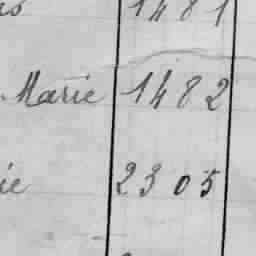 1481
Marie 1482
2305